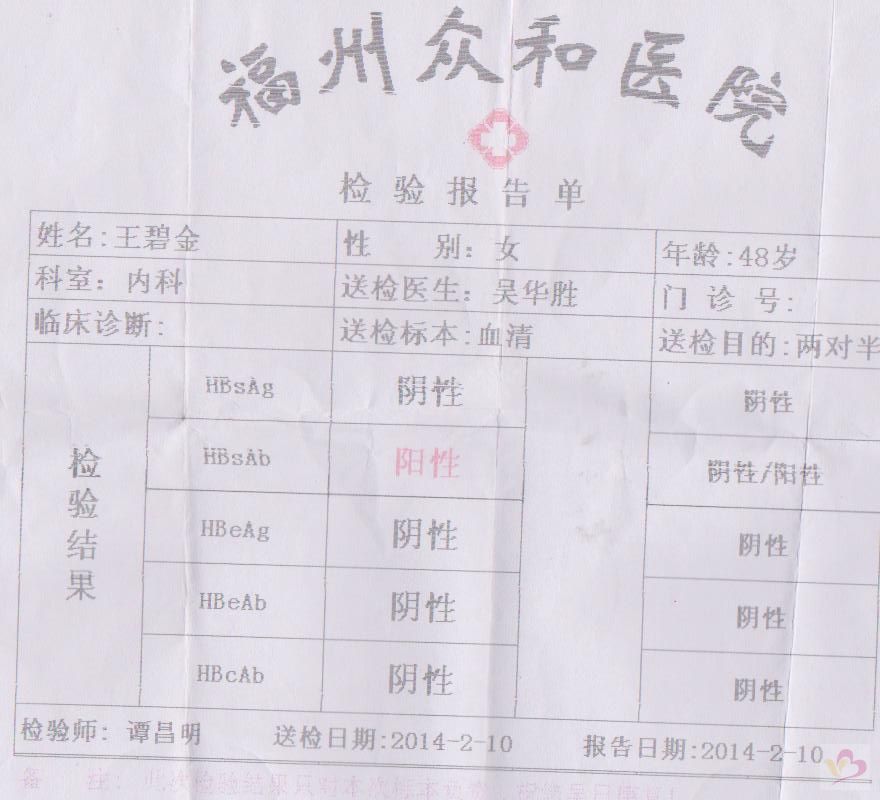 福州众和医院
检验报告单
姓名:王碧金 性 别：女 年龄:48岁
科室：内科 送检医生：吴华胜 门 诊 号:
临床诊断: 送检标本:血清 送检目的:两对半
检验结果
HBsAg 阴性 阴性
HBsAb 阳性 阴性/阳性
HBeAg 阴性 阴性
HBeAb 阴性 阴性
HBcAb 阴性 阴性
检验师: 谭昌明 送检日期:2014-2-10 报告日期:2014-2-10
备 注: 此次检验结果只对本次标本负责